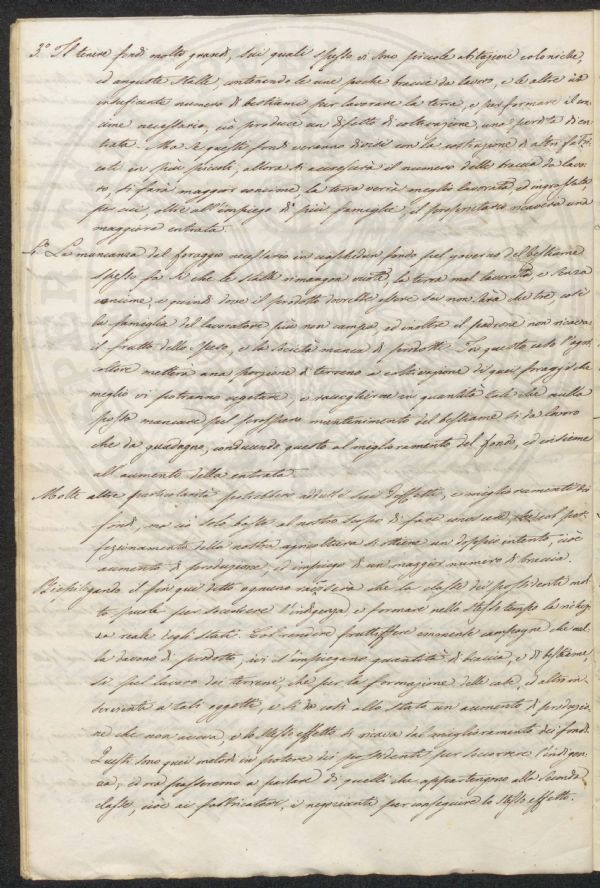 3.° Il tenere fondi molto grandi, sui quali spesso vi sono piccole abitazioni coloniche,
ed anguste stalle, contenendo le une poche braccie da lavoro, e le altre un
insuficente numero di bestiame per lavorare la terra, e per formare il con-
cime necessario, ciò produce un difetto di coltivazione, una perdita di en-
trata. Ma se questi fondi verranno divisi con la costruzione di altri fabbri-
cati in più piccoli, allora si accrescerà il numero delle braccia da lavo-
ro, si farà maggior concime, la terra verrà meglio lavorata ed ingrassata,
per cui, oltre all'impiego di più famiglie, il proprietario ricaverà una
maggiore entrata.
4.° La mancanza del foraggio necessario in ciaschedun fondo pel governo del bestiame
spesso fa sì che le stalle rimangon vuote, la terra mal lavorata, e senza
concime, e quindi dove il prodotto dovrebbe essere sei non sarà che tre, così
la famiglia del lavoratore più non campa, ed inoltre il padrone non ricava
il frutto dello speso, e la società manca di prodotti. In questo caso l'agri-
coltore metterà una porzione di terreno a coltivazione di quei foraggi che
meglio vi potranno vegetare, e raccoglierne in quantità tale che nulla
possa mancare pel prospero mantenimento del bestiame sì da lavoro
che da guadagno, conducendo questo al miglioramento del fondo, ed insieme
all'aumento della entrata.
Molte altre particolarità potrebbero addursi sui difetti, e miglioramenti dei
fondi, ma ciò solo basta al nostro scopo di fare conoscere che col per-
fezionamento della nostra agricoltura si ottiene un doppio intento, cioè
aumento di produzione, ed impiego di un maggior numero di braccia.
Riepilogando il fin quì detto ognuno conoscerà che la classe dei possidenti mol-
to puote per soccorrere l'indigenza e formare nello stesso tempo la ricchez-
za reale degli Stati. Col rendere fruttifere cotante campagne che nul-
la davano di prodotto, ivi s'impiegano quantità di braccia, e di bestiame,
sì pel lavoro dei terreni, che per la formazione delle case, ed altri in-
servienti a tali oggetti, e si dà così allo stato un aumento di produzio-
ne che non aveva, e lo stesso effetto si ricava dal miglioramento dei fondi.
Questi sono quei metodi in potere dei possidenti per soccorrere l'indigen-
za, ed ora passeremo a parlare di quelli che appartengono alla seconda
classe, cioè ai fabbricatori, e negozianti per conseguire lo stesso effetto.